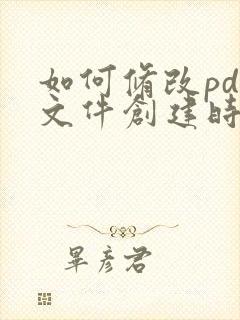 如何修改pd
文件創建時
畢彥君